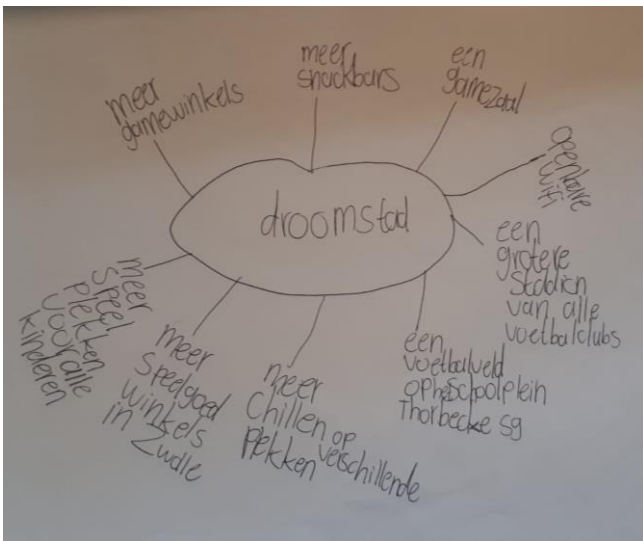 droomstad
meer
gamewinkels
meer
snackbars
een
gamezaal
openbare
wifi
een
grotere
stadion
van alle
voetbalclubs
een
voetbalveld
op het Schoolplein
Thorbecke sg
meer
Chillen op
plekken verschillende
meer
Speelgoed
winkels
in Zwolle
meer
Speel
plekken
voor alle
kinderen